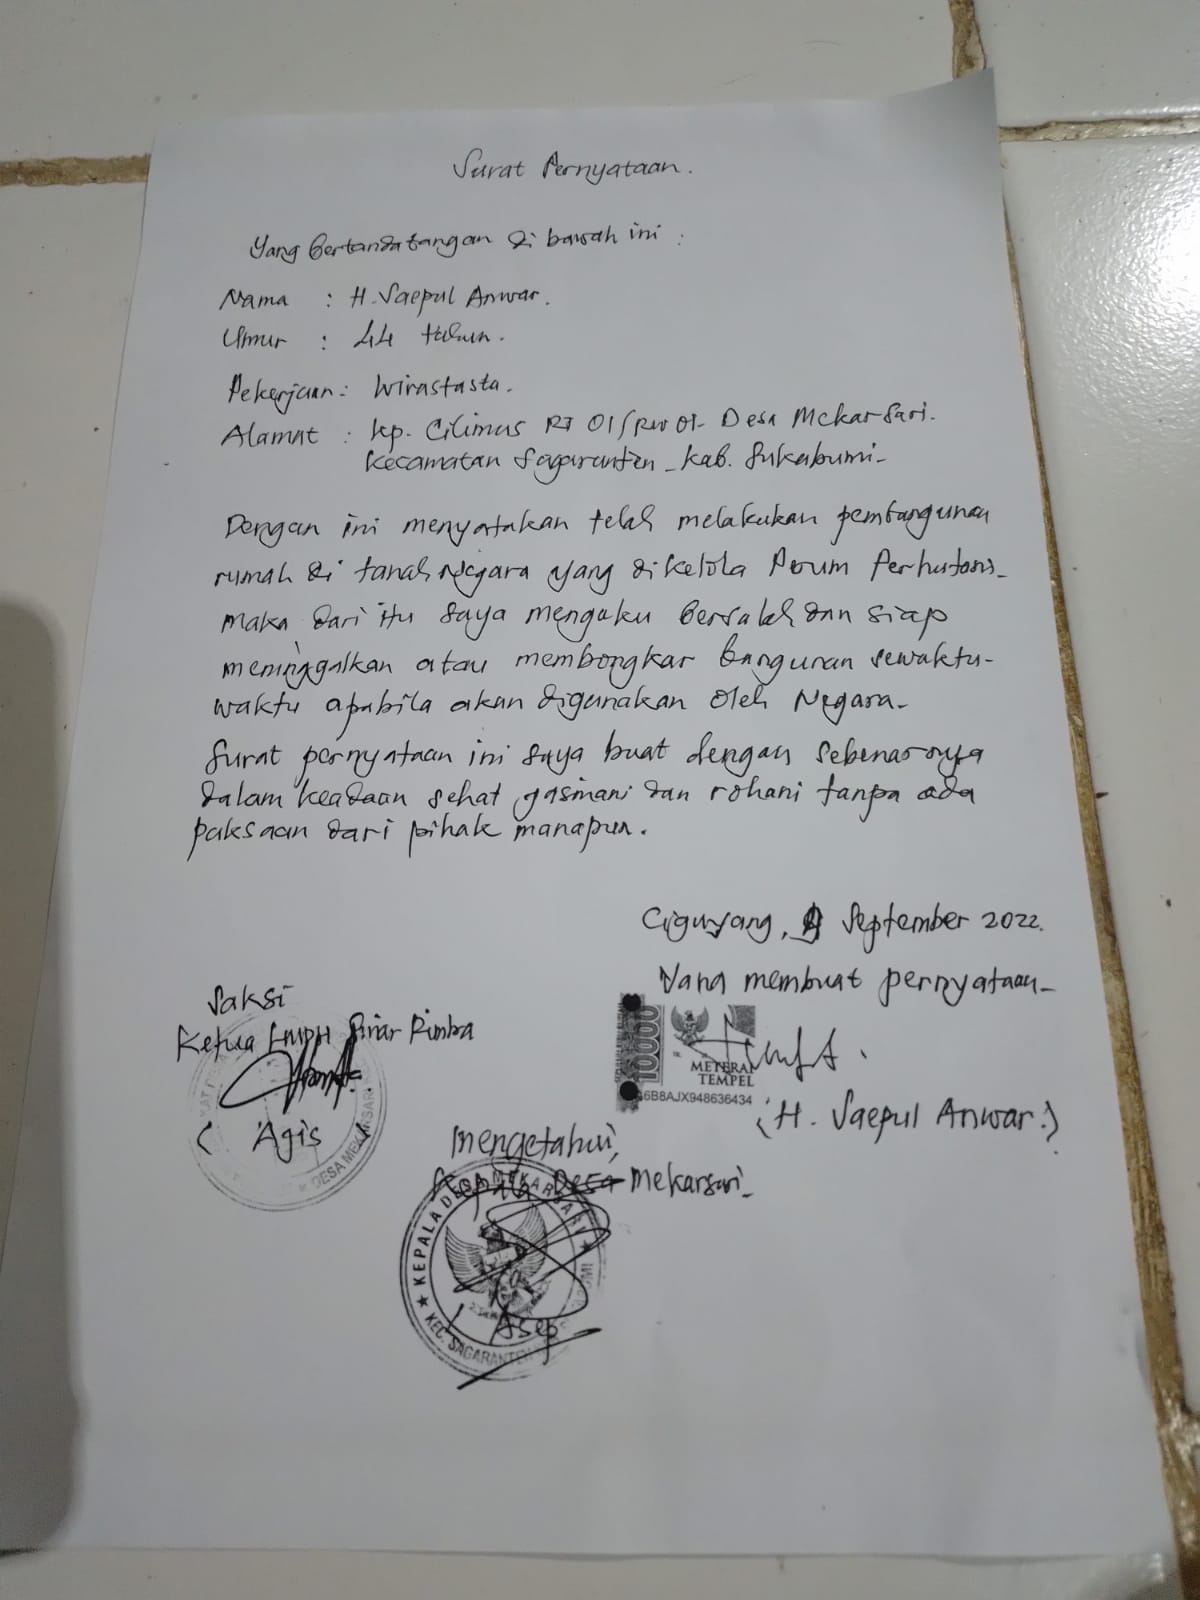 Surat Pernyataan.
Yang bertanda tangan di bawah ini :
Nama : H. Saepul Anwar.
Umur : 44 tahun.
Pekerjaan : Wirastasta.
Alamat : kp. Cilimus RT 01/RW 01- Desa Mekarsari.
Kecamatan Sagaranten - Kab. Sukabumi-
Dengan ini menyatakan telah melakukan pembangunan
rumah di tanah Negara yang dikelola Perum Perhutani-
maka dari itu saya mengaku bersalah dan siap
meninggalkan atau membongkar bangunan sewaktu-
waktu apabila akan digunakan oleh Negara-
Surat pernyataan ini saya buat dengan sebenarnya
dalam keadaan sehat jasmani dan rohani tanpa ada
paksaan dari pihak manapun.
Ciguyang, September 2022.
Yang membuat pernyataan-
Saksi
Ketua LMDH Sinar Rimba
10000
METERAI
TEMPEL
6B8AJX948636434
(H. Saepul Anwar.)
( Agis )
DESA MEKARSARI
Mengetahui,
Kepala Desa Mekarsari-
★ KEPALA DESA MEKARSARI ★
KEC. SAGARANTEN
( Asep